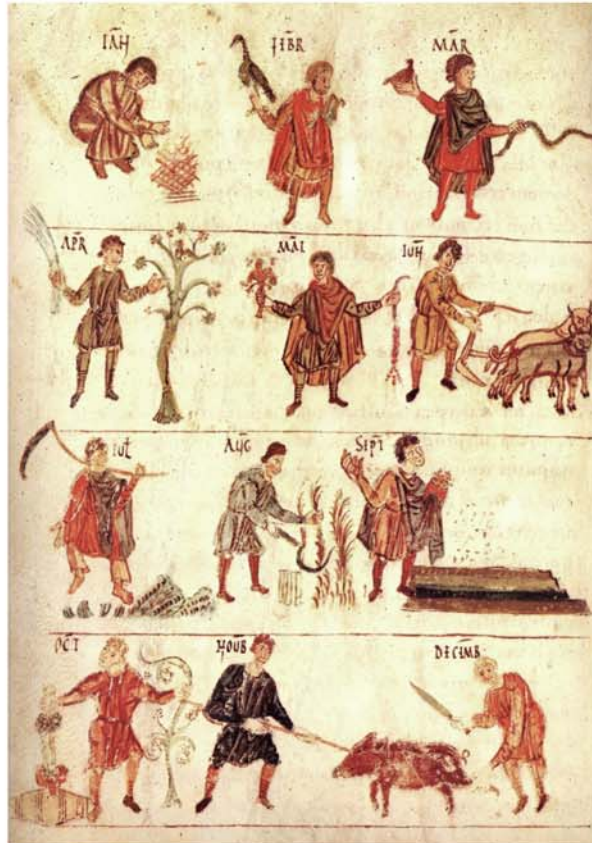 IAN̄ FEBR MAR̄
APR̄ MAI IUN̄
IUL AUG SEPT
OCT NOUB DECIMB